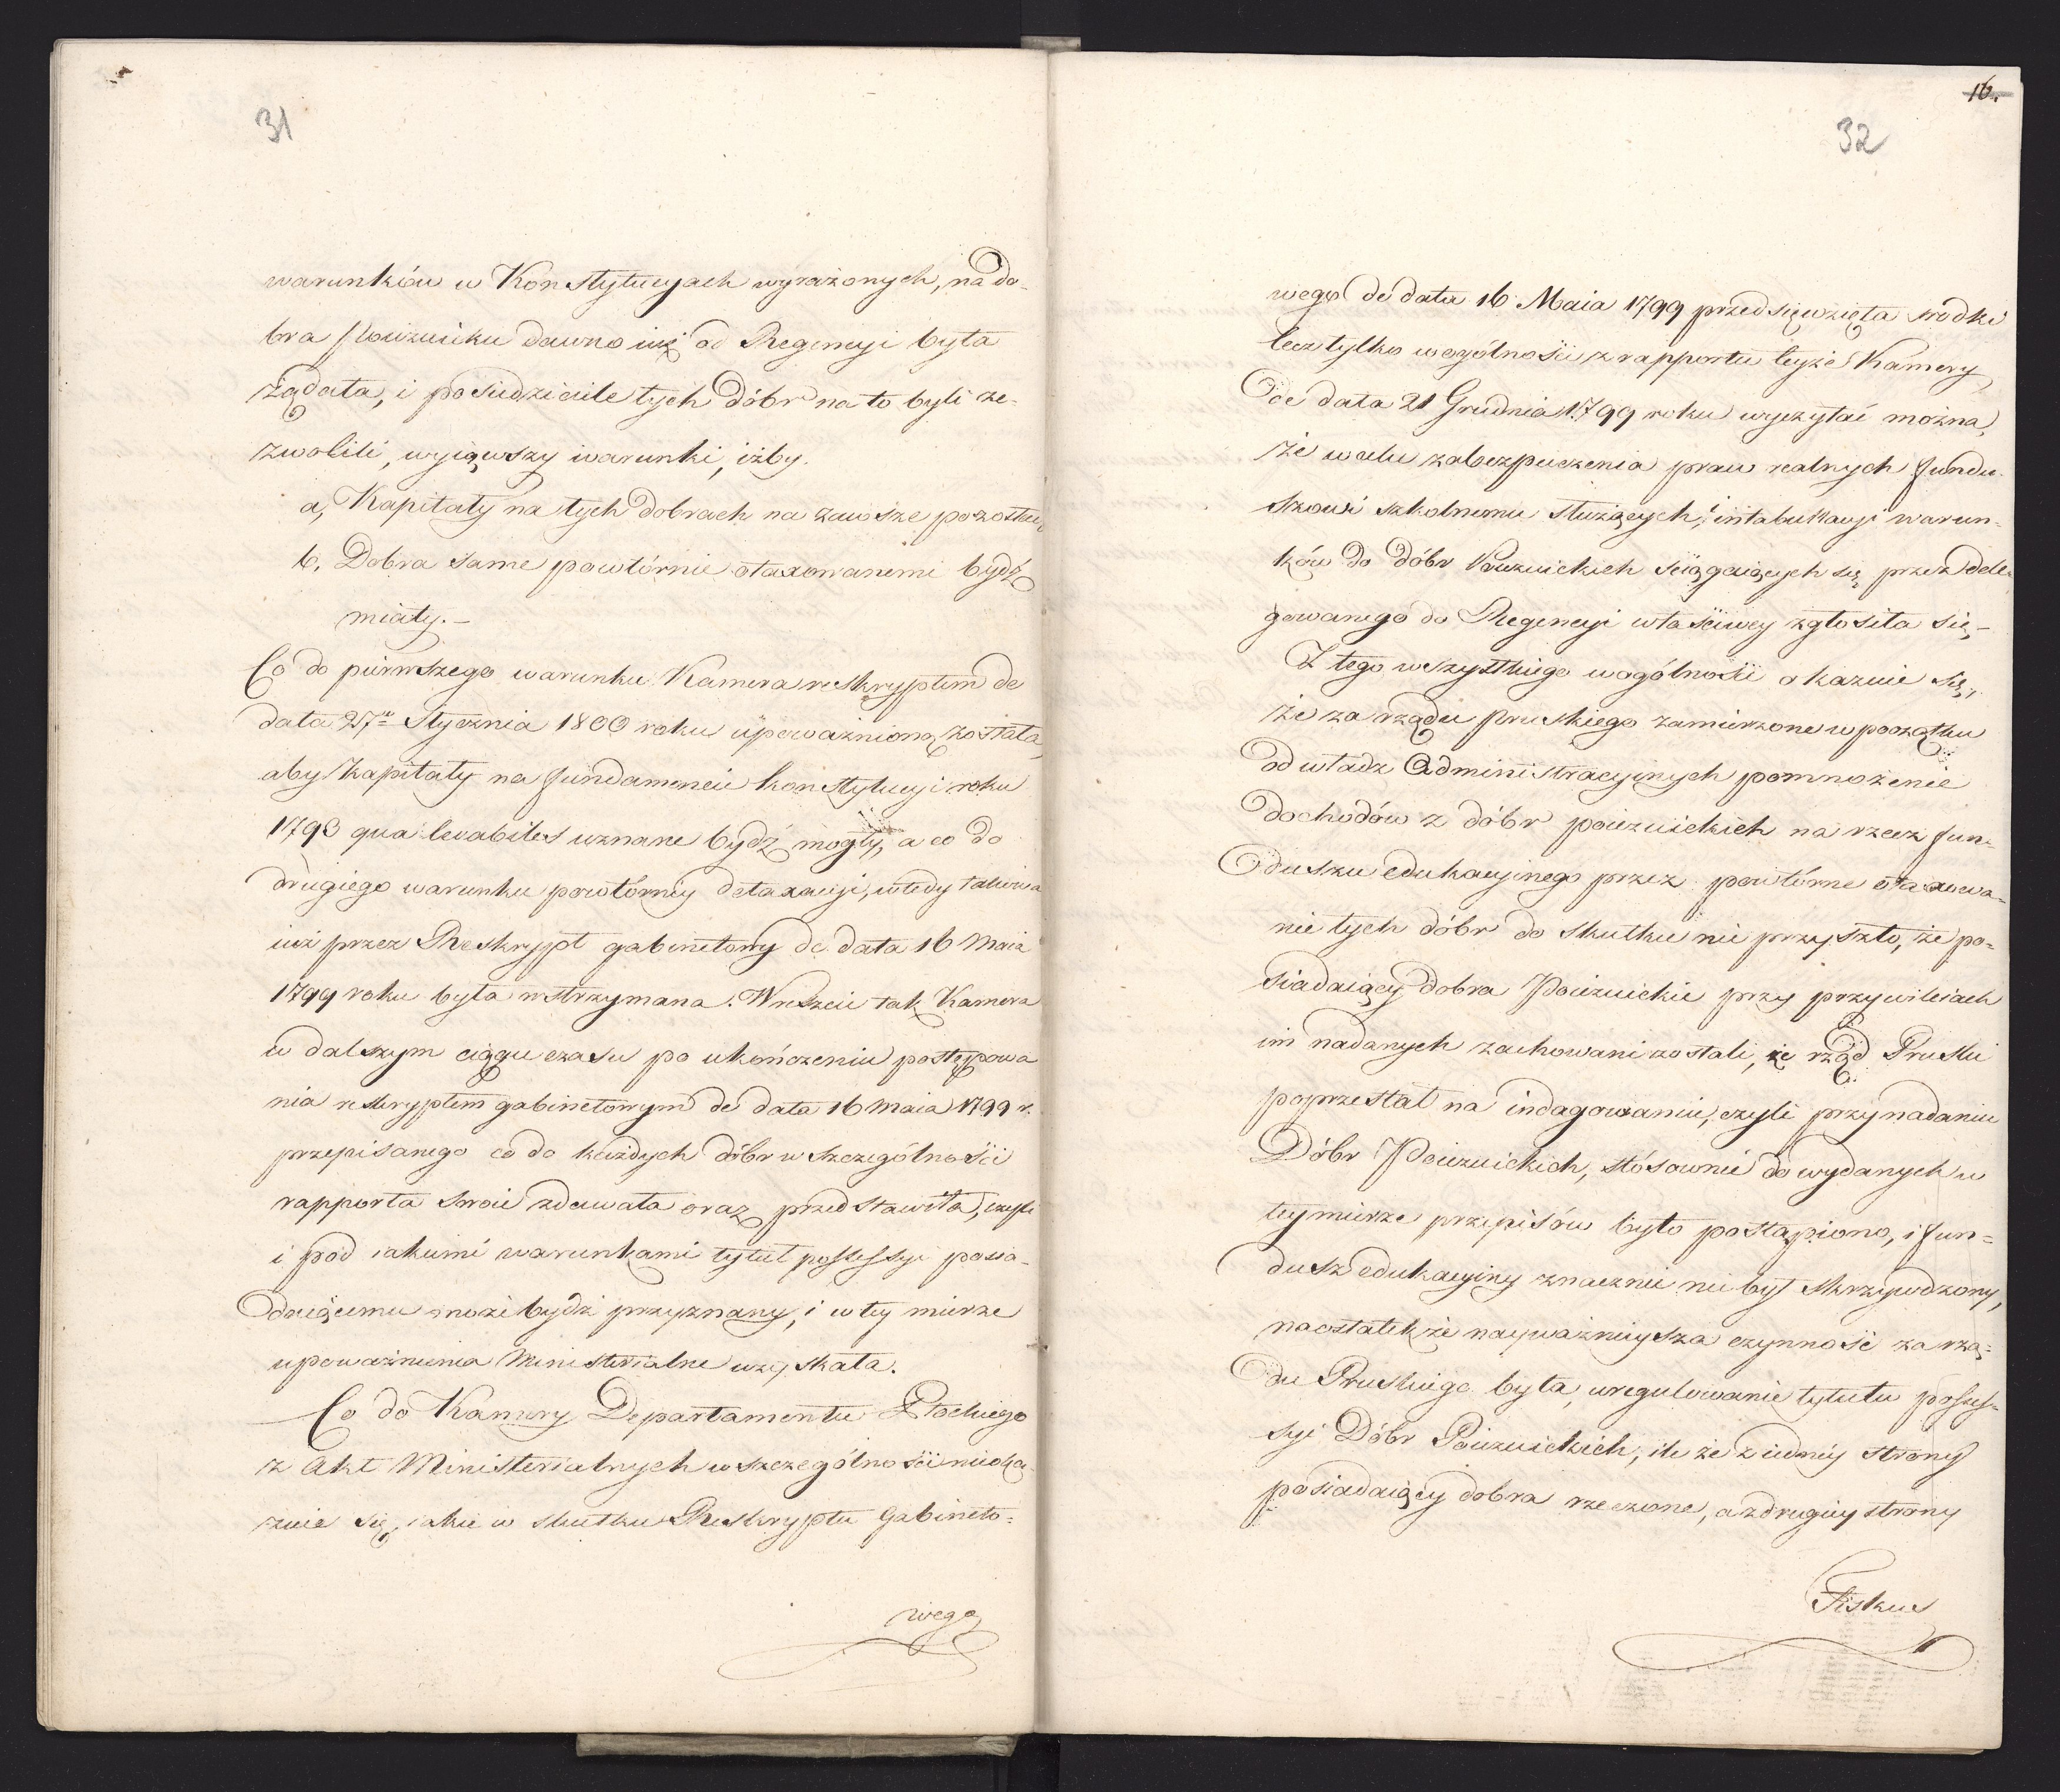 31
warunków w Konstytucyach wyrażonych, na do-
bra Poiezuickie dawno iuż od Regencyi była
żądała, i posiedziciele tych Dóbr na to byli ze-
zwolili, wyiąwszy warunki, iżby.
a, Kapitały na tych dobrach na zawsze pozostały
b, Dobra same powtórnie otaxowanemi bydź
miały.-
Co do pierwszego warunku Kamera reskryptem de
data 27ⁿ Stycznia 1800 roku upoważnioną została,
aby Kapitały na fundamencie Konstytucyi roku
1793 qua levabiles uznane bydź mogły, a co do
drugiego warunku powtórney detaxacyi, wtedy takowa
iuż przez Reskrypt gabinetowy de data 16 Maia
1799 roku była wstrzymana. Wreszcie tak Kamera
w dalszym ciągu czasu po ukończeniu postępowa
nia reskryptem gabinetowym de data 16 Maia 1799 r.
przepisanego co do każdych dóbr w szczególności
rapporta swoie zdawała oraz przedstawiła, czyli
i pod iakiemi warunkami tytuł possessyi posia-
daiącemu może bydź przyznany, i w tey mierze
upoważnienia Ministerialne uzyskała.
Co do Kamery Departamentu Płockiego
z Akt Ministerialnych w szczególności nieoka-
zuie się, iakie w skutku Reskryptu Gabineto=
wego
16.
32
wego de data 16 Maia 1799 przedsięwzięła srodki
lecz tylko wogólności z rapportu teyże Kamery,
de data 21 Grudnia 1799 roku wyczytać można,
że w celu zabezpieczenia praw realnych fundu-
szowi szkolnemu służących, i intabulacyi warun-
ków do dóbr Poiezuickich ściągaiących się przez dele-
gowanego do Regencyi właściwey zgłosiła się,-
Z tego wszystkiego wogólności okazuie się,
że za rządu Pruskiego zamierzone w początku
od władz Administracyinych pomnożenie
dochodów z dóbr poiezuickich na rzecz fun-
duszu edukacyinego przez powtórne otaxowa-
nie tych dóbr do skutku nie przyszło, że po=
siadaiący dobra Poiezuickie przy przywileiach
im nadanych zachowani zostali, że rząd Pruski
poprzestał na indagowaniu, czyli przy nadaniu
Dóbr Poiezuickich, stósownie do wydanych w
tey mierze przepisów było postąpiono, i fun=
dusz edukacyiny znacznie nie był skrzywdzony,
naostatek że nayważnieysza czynność za rzą=
du Pruskiego była, uregulowanie tytułu posses=
syi Dóbr Poiezuickich; ile że z iedney strony
posiadaiący dobra rzeczone, a z drugiey strony
Fiskus